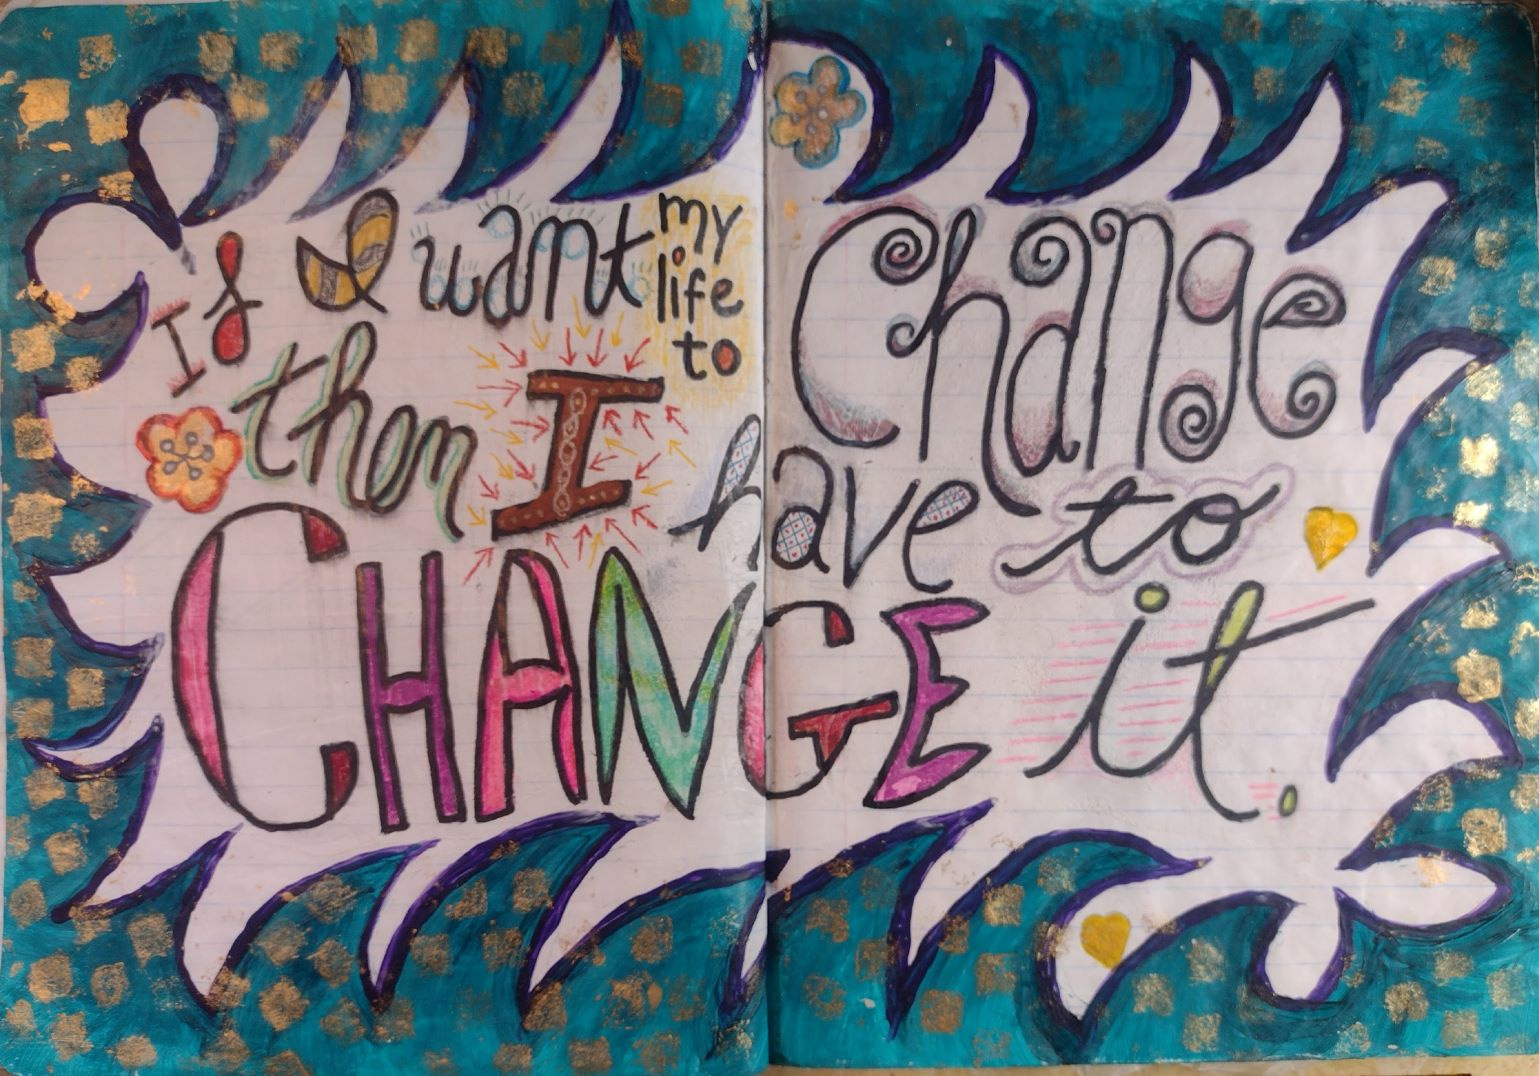 If I want my life to change
then I have to
CHANGE it.